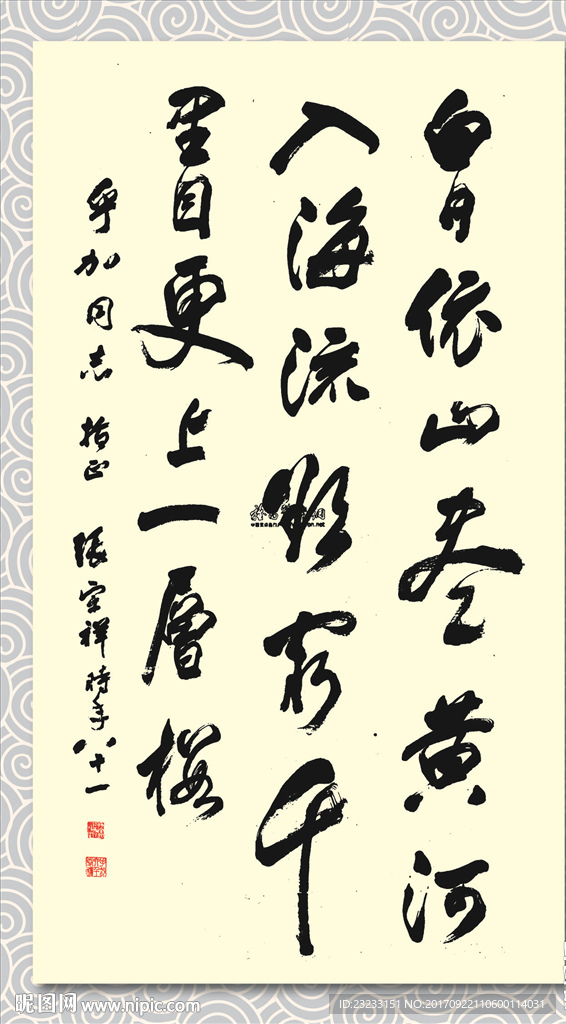 白日依山盡黃河
入海流欲窮千
里目更上一層樓
加同志 指正 張宗祥時年八十一
昵图网 www.nipic.com
ID:23233151 NO:20170922110600114031